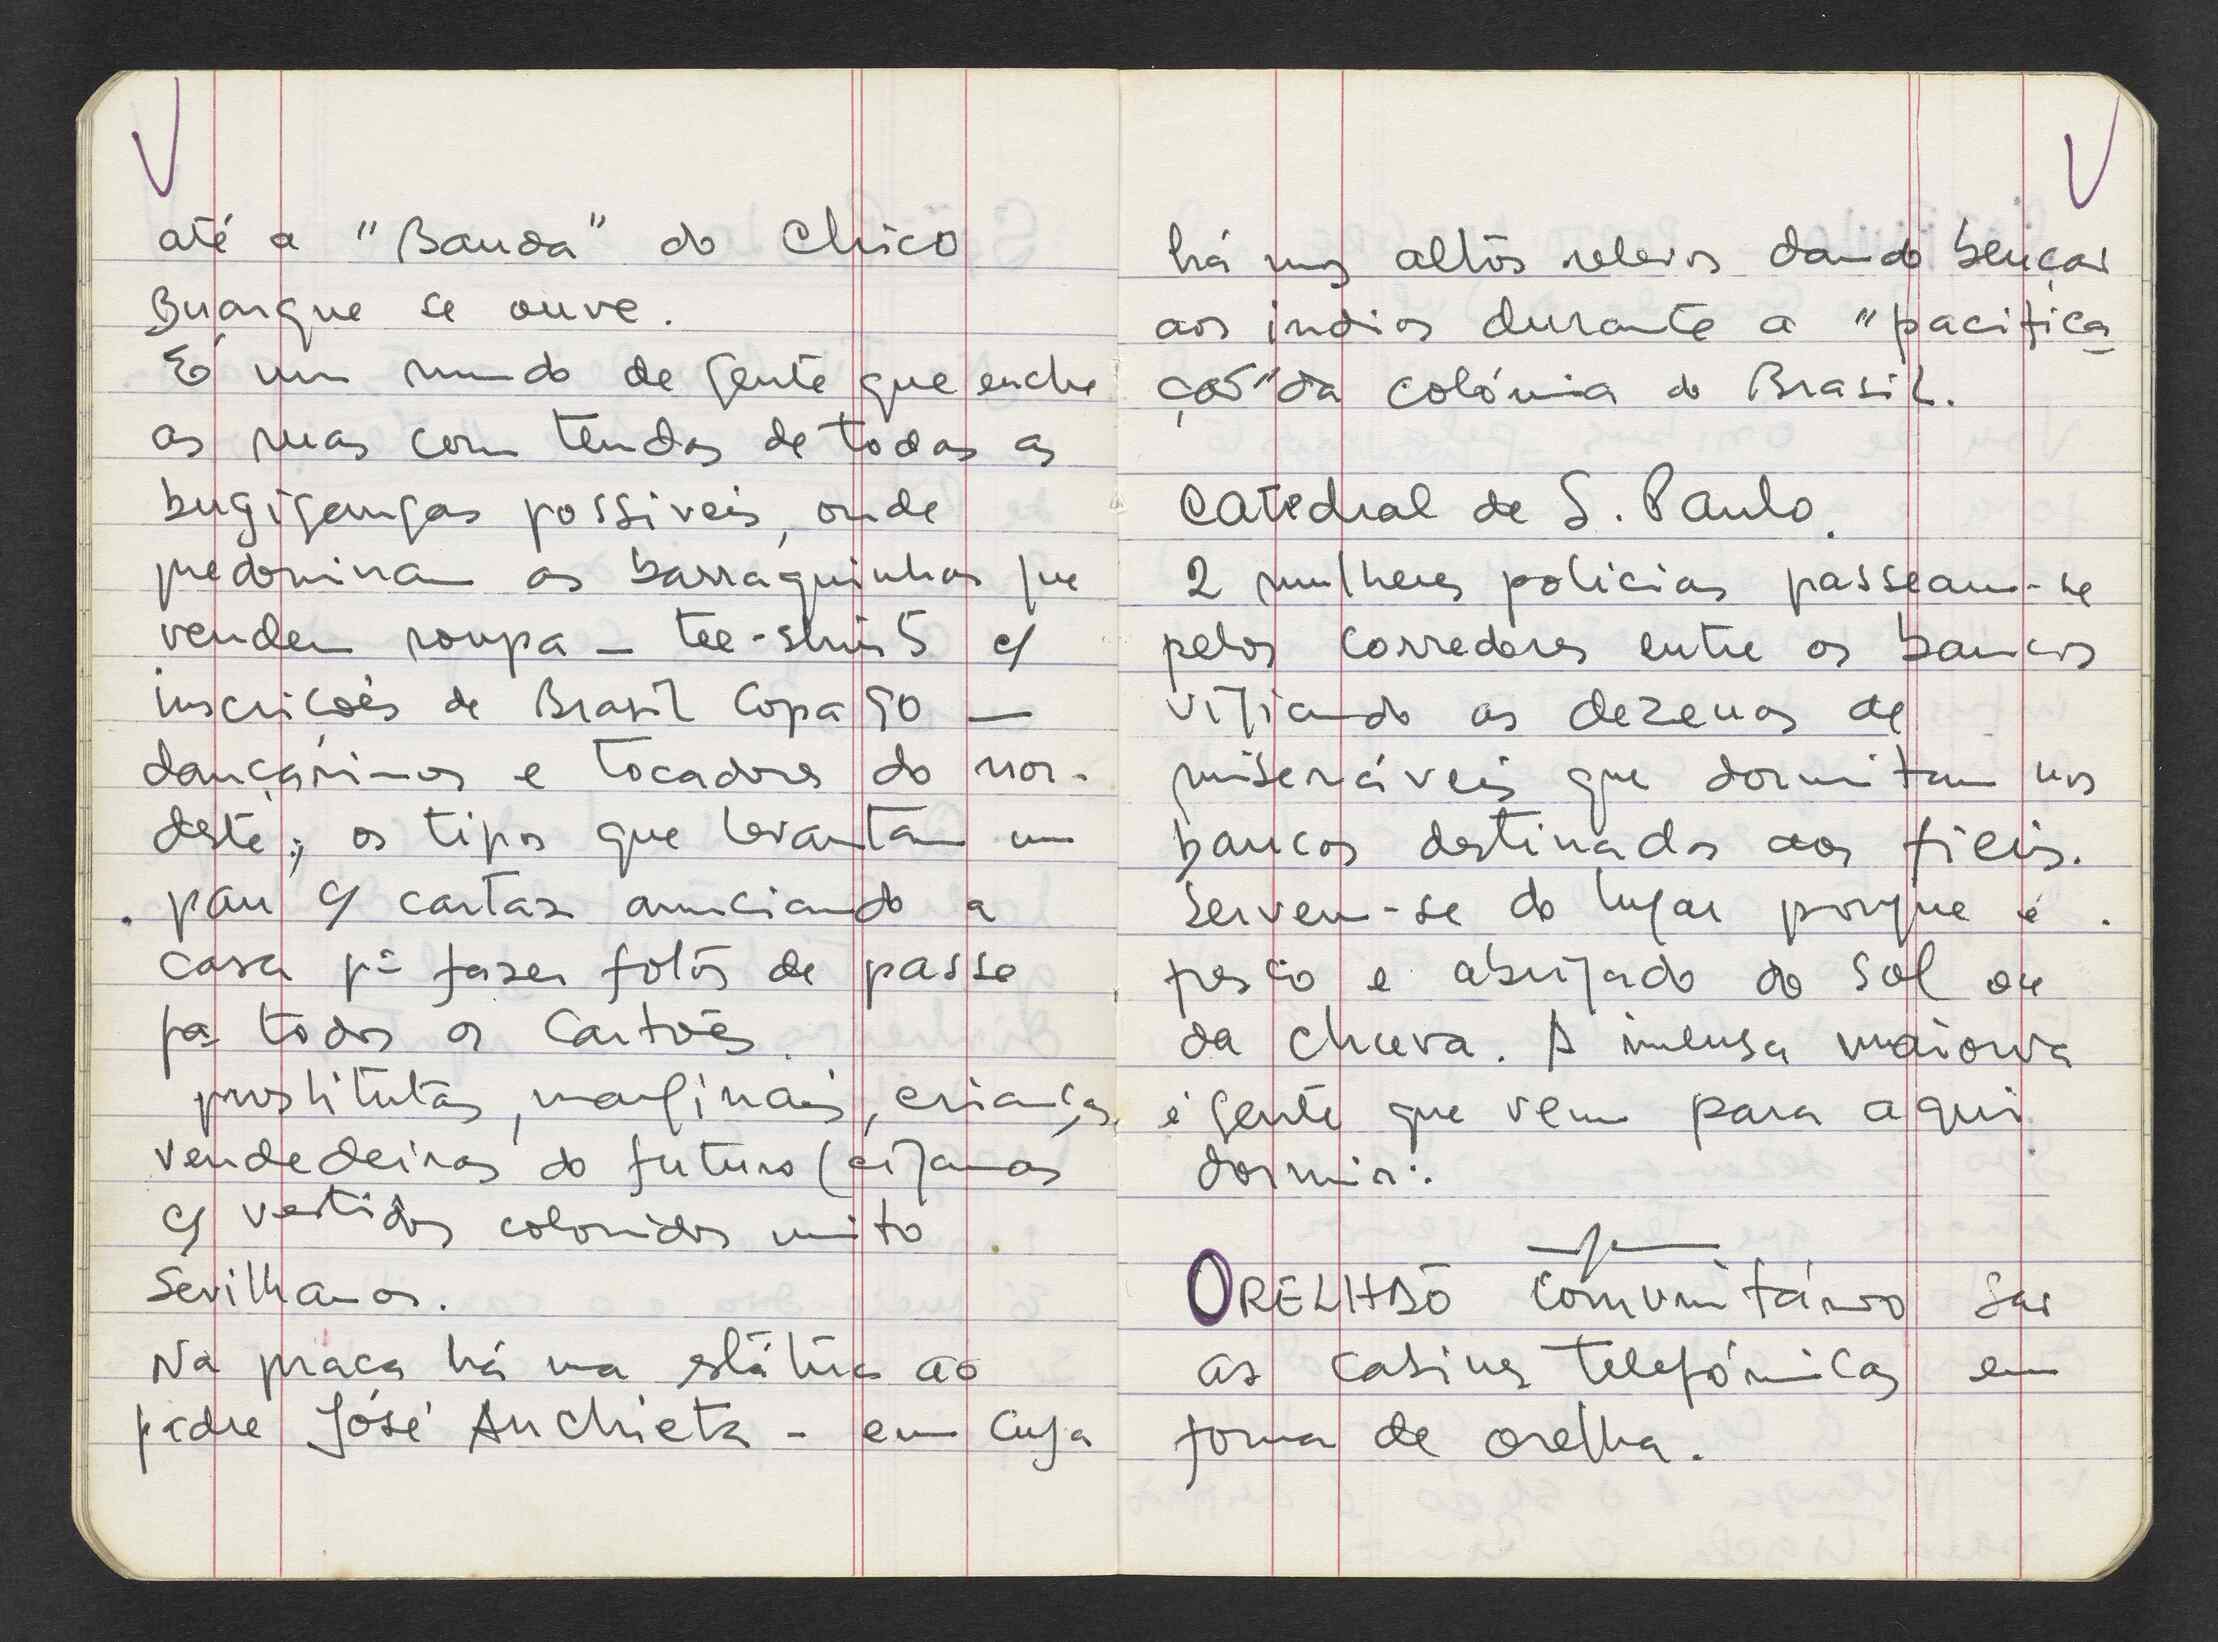 até a "Banda" do Chico
Buarque se ouve.
É um mundo de gente que enche
as ruas com tendas de todas as
bugigangas possiveis, onde
predominam as barraquinhas que
vendem roupa — tee-shirts c/
inscrições de Brasil Copa 90 —
dançarinos e tocadores do nor-
deste; os tipos que levantam um
pau c/ cartaz anunciando a
casa pª fazer fotos de passe
pª todos os cartões.
prostitutas, marginais, crianças,
vendedeiras do futuro (ciganas
c/ vestidos coloridos muito
Sevilhanos.
Na praça há uma estátua ao
padre José Anchieta - em cuja
há uns altos relevos dando bençãos
aos indios durante a "pacifica
ção" da colónia do Brasil.
Catedral de S. Paulo.
2 mulheres policias passeam-se
pelos corredores entre os bancos
vigiando as dezenas de
miseráveis que dormitam nos
bancos destinados aos fieis.
Servem-se do lugar porque é
fresco e abrigado do sol ou
da chuva. A imensa maioria
é gente que vem para aqui
dormir.
ORELHÃO comunitário são
as cabines telefónicas em
forma de orelha.